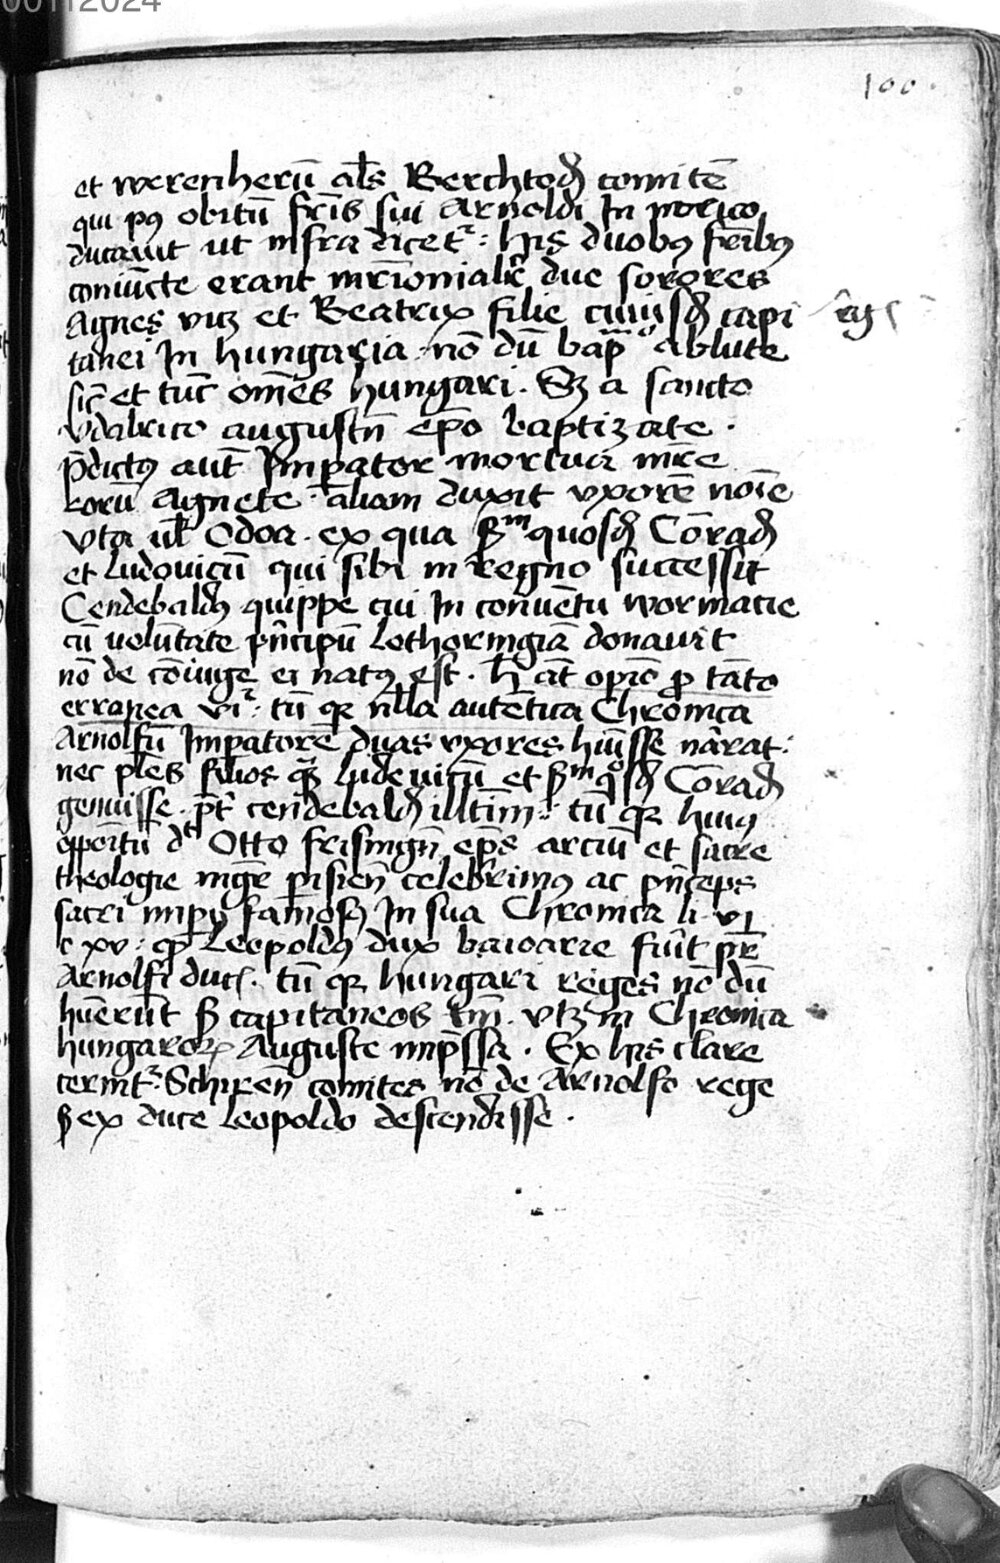 00112024
100.
et werenherū al̄s Berchtold comitē
qui pꝰ obitū fr̄is sui Arnoldi In norico
ducavit ut infra dicetr̄ : his duobꝰ fr̄ibꝰ
coniūcte erant mr̄ionialir̄ due sorores
Agnes viꝫ et Beatrix filie cuiusd̄ capi
tanei In hungaria . nō dū bap̄ᵒ ablute
sic̄ et tūc om̄es hungari . Sꝫ a sancto
vdalrico augustn̄ ep̄o baptizate .
p̄dictꝰ aut̄ Imꝑator mortua mr̄e
eorū Agnete . aliam duxit vxorē noīe
vta ul̄ Odoa . ex qua quosd̄ Conrad̄
et Ludovicū qui sibi in regno successit
Cendebaldꝰ quippe cui In conuētu wormacie
cū volūtate pn̄cipū Lothoringiā donavit
nō de cōiuge ei natꝰ est . h̄ at̄ opīo ꝓ tāto
erranea vr̄ : tū qꝛ nl̄la autētica Chronica
Arnolfū Imꝑatorē duas vxores hūisse nārat :
nec pl̄es filios qꝫ Ludevicū et quosd̄ Conrad̄
genuisse . p̄t̄ cendebald̄ illtīm : tū qꝛ huiꝰ
oppoītū dt̄ Otto frisingn̄ ep̄s arciū et sacre
theologie mgr̄ ꝑisien̄ celebrimꝰ ac pn̄ceps
sacri imꝑij famosꝰ In sua Chronica li . vi
c xv : ꝙ Leopoldꝰ dux baioarie fuit pr̄
Arnolfi duc̄ . tū qꝛ hungari reges nō dū
huērūt sꝫ capitaneos tm̄ . vtꝫ in Chronica
hungaroꝝ Auguste imp̄ssa . Ex his clare
cernitr̄ Schiren̄ comites nō de Arnolfo rege
sꝫ ex duce Leopoldo descendisse .